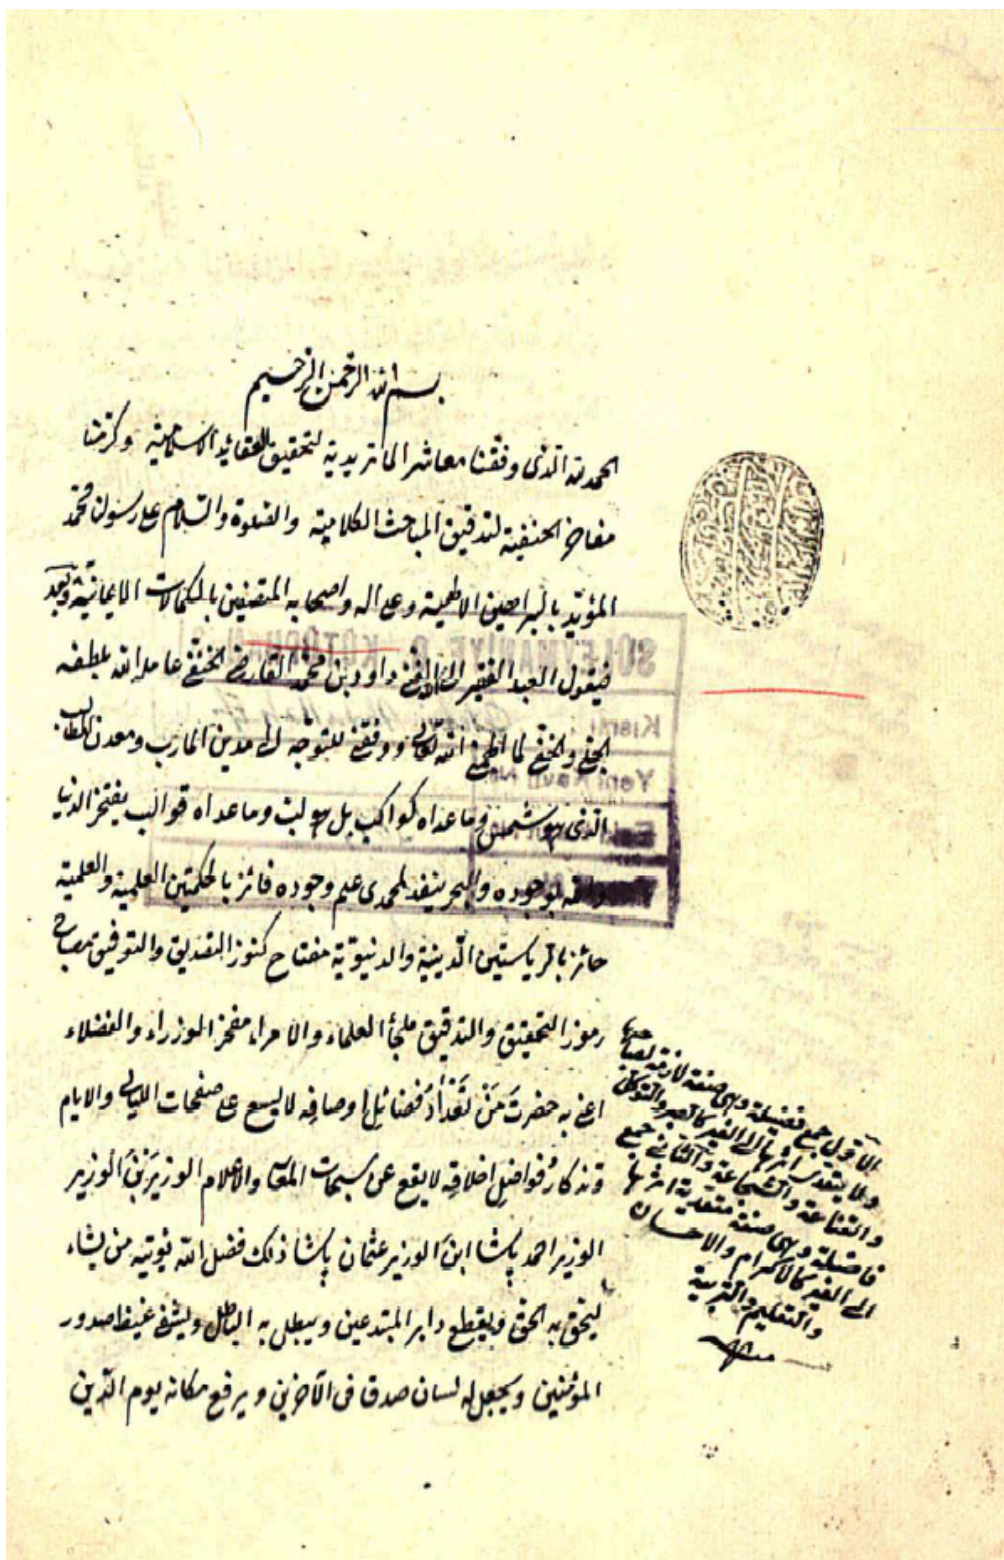 بسم الله الرحمن الرحيم
الحمد لله الذى وفقنا معاشر الماتريدية لتحقيق العقايد الاسلامية وكرمنا
مفاخر الحنفية لتدقيق المباحث الكلامية والصلوة والسلام على رسوله محمد
المؤيد بالبراهين وعلى اله واصحابه المتصفين بالكمالات الايمانية وبعد
فيقول العبد الفقير داود بن محمد القارصى الحنفى عامله الله بلطفه
الجلى والخفى لما الله تعالى ووفقنى للتوجه الى مدين المارب ومعدن المطالب
الذى هو شمس وما عداه كواكب بل هو لب وما عداه قوالب يفتخر الدنيا
بوجوده والبحر ينفد وجوده فائز بالحكمتين العلمية والعملية
حائز بالرياستين الدينية والدنيوية مفتاح كنوز التصديق والتوفيق مصباح
رموز التحقيق والتدقيق ملجأ العلماء والامراء مفخر الوزراء والفضلاء
اعنى به حضرت من تعداد فضائل اوصافه لا يسع على صفحات الليالى والايام
وتذكار فواضل اخلاقه لا يقع والاعلام الوزير بن الوزير
الوزير احمد پاشا ابن الوزير عثمان پاشا ذلك فضل الله يؤتيه من يشاء
ليحق به الحق ويقطع دابر المبتدعين ويبطل به الباطل ويشفى غيظ صدور
المؤمنين ويجعل له لسان صدق فى الآخرين ويرفع مكانه يوم الدين
الاول جمع فضيلة وهى صفة لازمة لصاحبها
ولا يتعدى اثرها الى الغير كالصبر والتوكل
والقناعة والشجاعة والثانى جمع
فاضلة وهى صفة متعدية اثرها
الى الغير كالاكرام والاحسان
والتعليم والتربية
منه
SÜLEYMANİYE G. KÜTÜPHANESİ
Kısmı
Yeni Kayıt No.